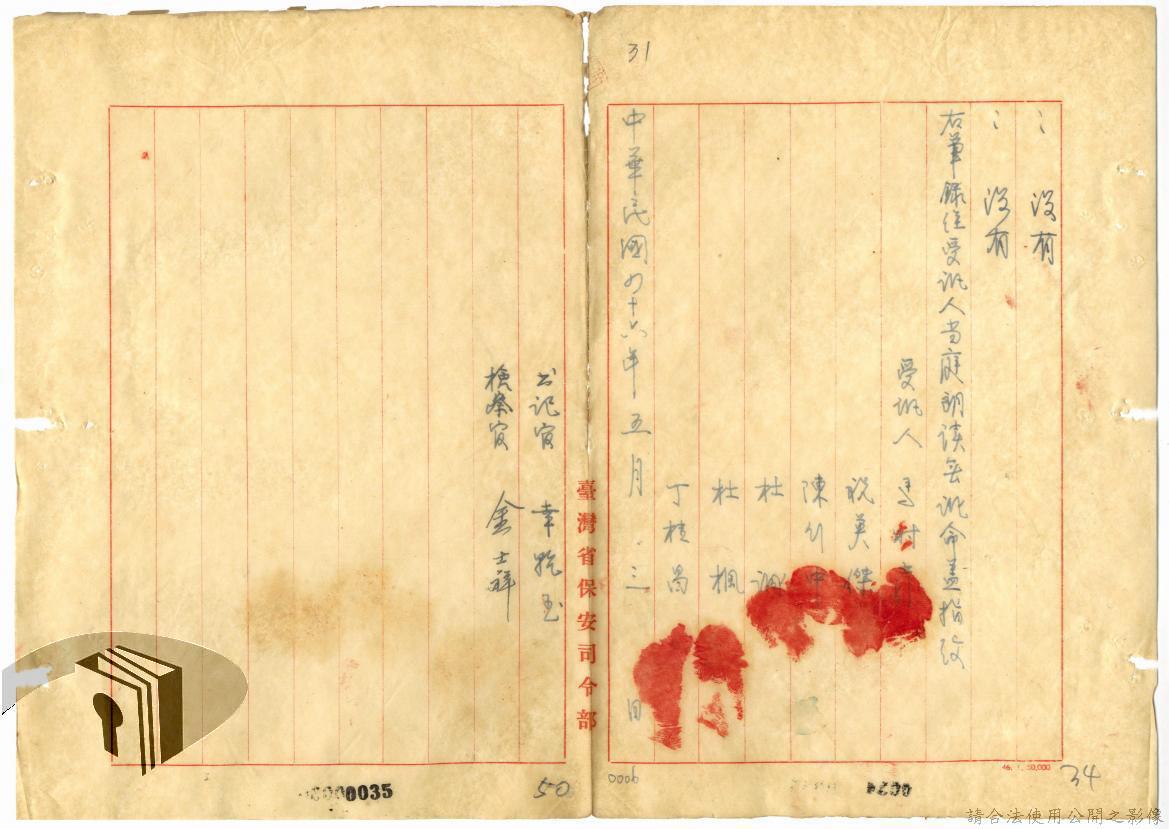 31
：没有
：没有
右筆錄經受訊人当庭朗读無訛命蓋指纹
受訊人 馬村
祝英傑
陳行中
杜
杜楓
丁桂昌
中華民國四十六年五月三日
臺灣省保安司令部
書记官
檢察官 金士祥
46. 1. 50,000
34
0024
0006
50
0000035
請合法使用公開之影像